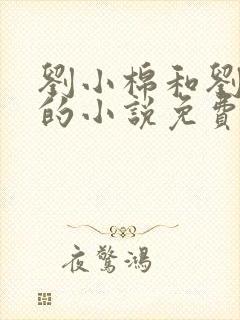 劉小棉和劉
的小說免費
夜驚鴻